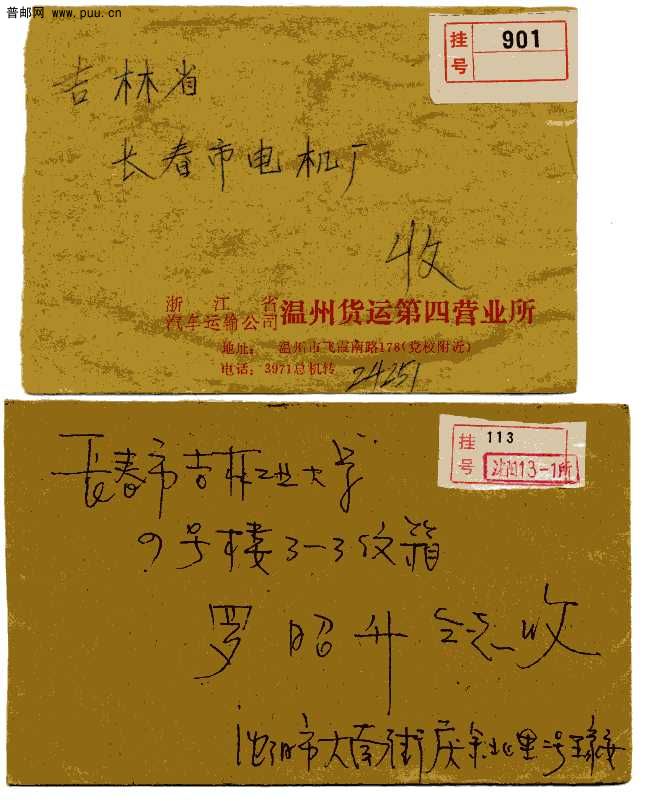 普邮网 www.puu.cn
挂号 901
吉林省
长春市电机厂
收
浙江省
汽车运输公司 温州货运第四营业所
地址: 温州市飞霞南路178(党校附近)
电话: 3971总机转 24251
挂号 113
沈阳13-1所
长春市吉林工业大学
9号楼3-3信箱
罗昭升 同志 收
沈阳市大南街庆余里二号